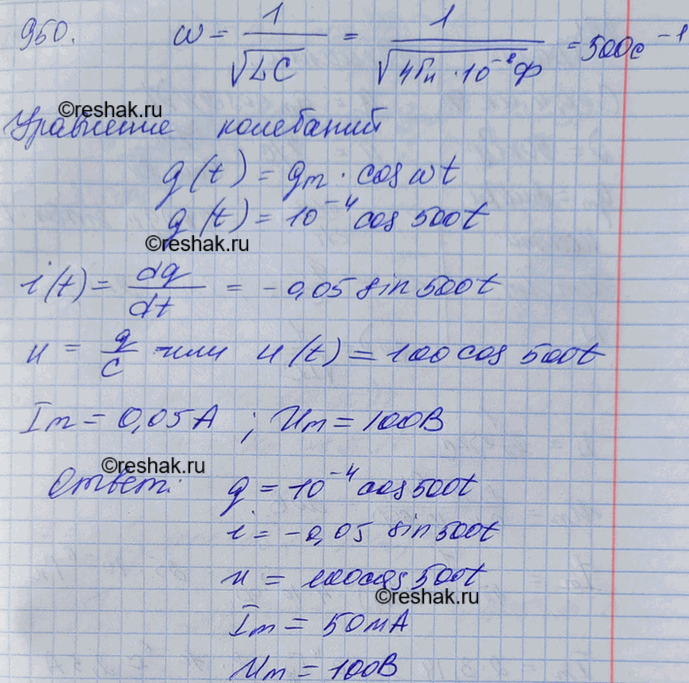 960. ω = 1/√LC = 1/√(4Гн · 10⁻⁶Ф) = 500с⁻¹
©reshak.ru
Уравнение колебаний
q(t) = qm · cos ωt
q(t) = 10⁻⁴ cos 500t
©reshak.ru
i(t) = dq/dt = -0,05 sin 500t
u = q/C или u(t) = 100 cos 500t
Im = 0,05А ; Um = 100В
©reshak.ru
Ответ: q = 10⁻⁴ cos 500t
i = -0,05 sin 500t
u = 100 cos 500t
©reshak.ru
Im = 50мА
Um = 100В